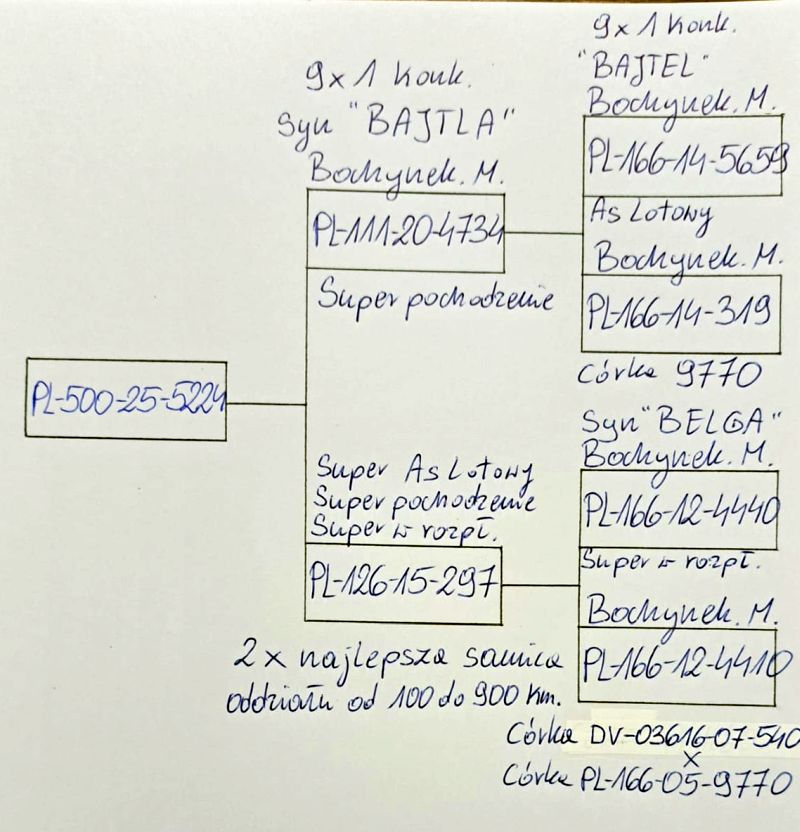 PL-500-25-5224
9x1 Konk.
Syn "BAJTLA"
Bochynek. M.
PL-111-20-4734
Super pochodzenie
Super As Lotowy
Super pochodzenie
Super w rozpł.
PL-126-15-297
2x najlepsza samica
oddziału od 100 do 900 km.
9x1 Konk.
"BAJTEL"
Bochynek. M.
PL-166-14-5659
As Lotowy
Bochynek. M.
PL-166-14-319
Córka 9770
Syn "BELGA"
Bochynek. M.
PL-166-12-4440
Super w rozpł.
Bochynek. M.
PL-166-12-4410
Córka DV-03616-07-540
x
Córka PL-166-05-9770